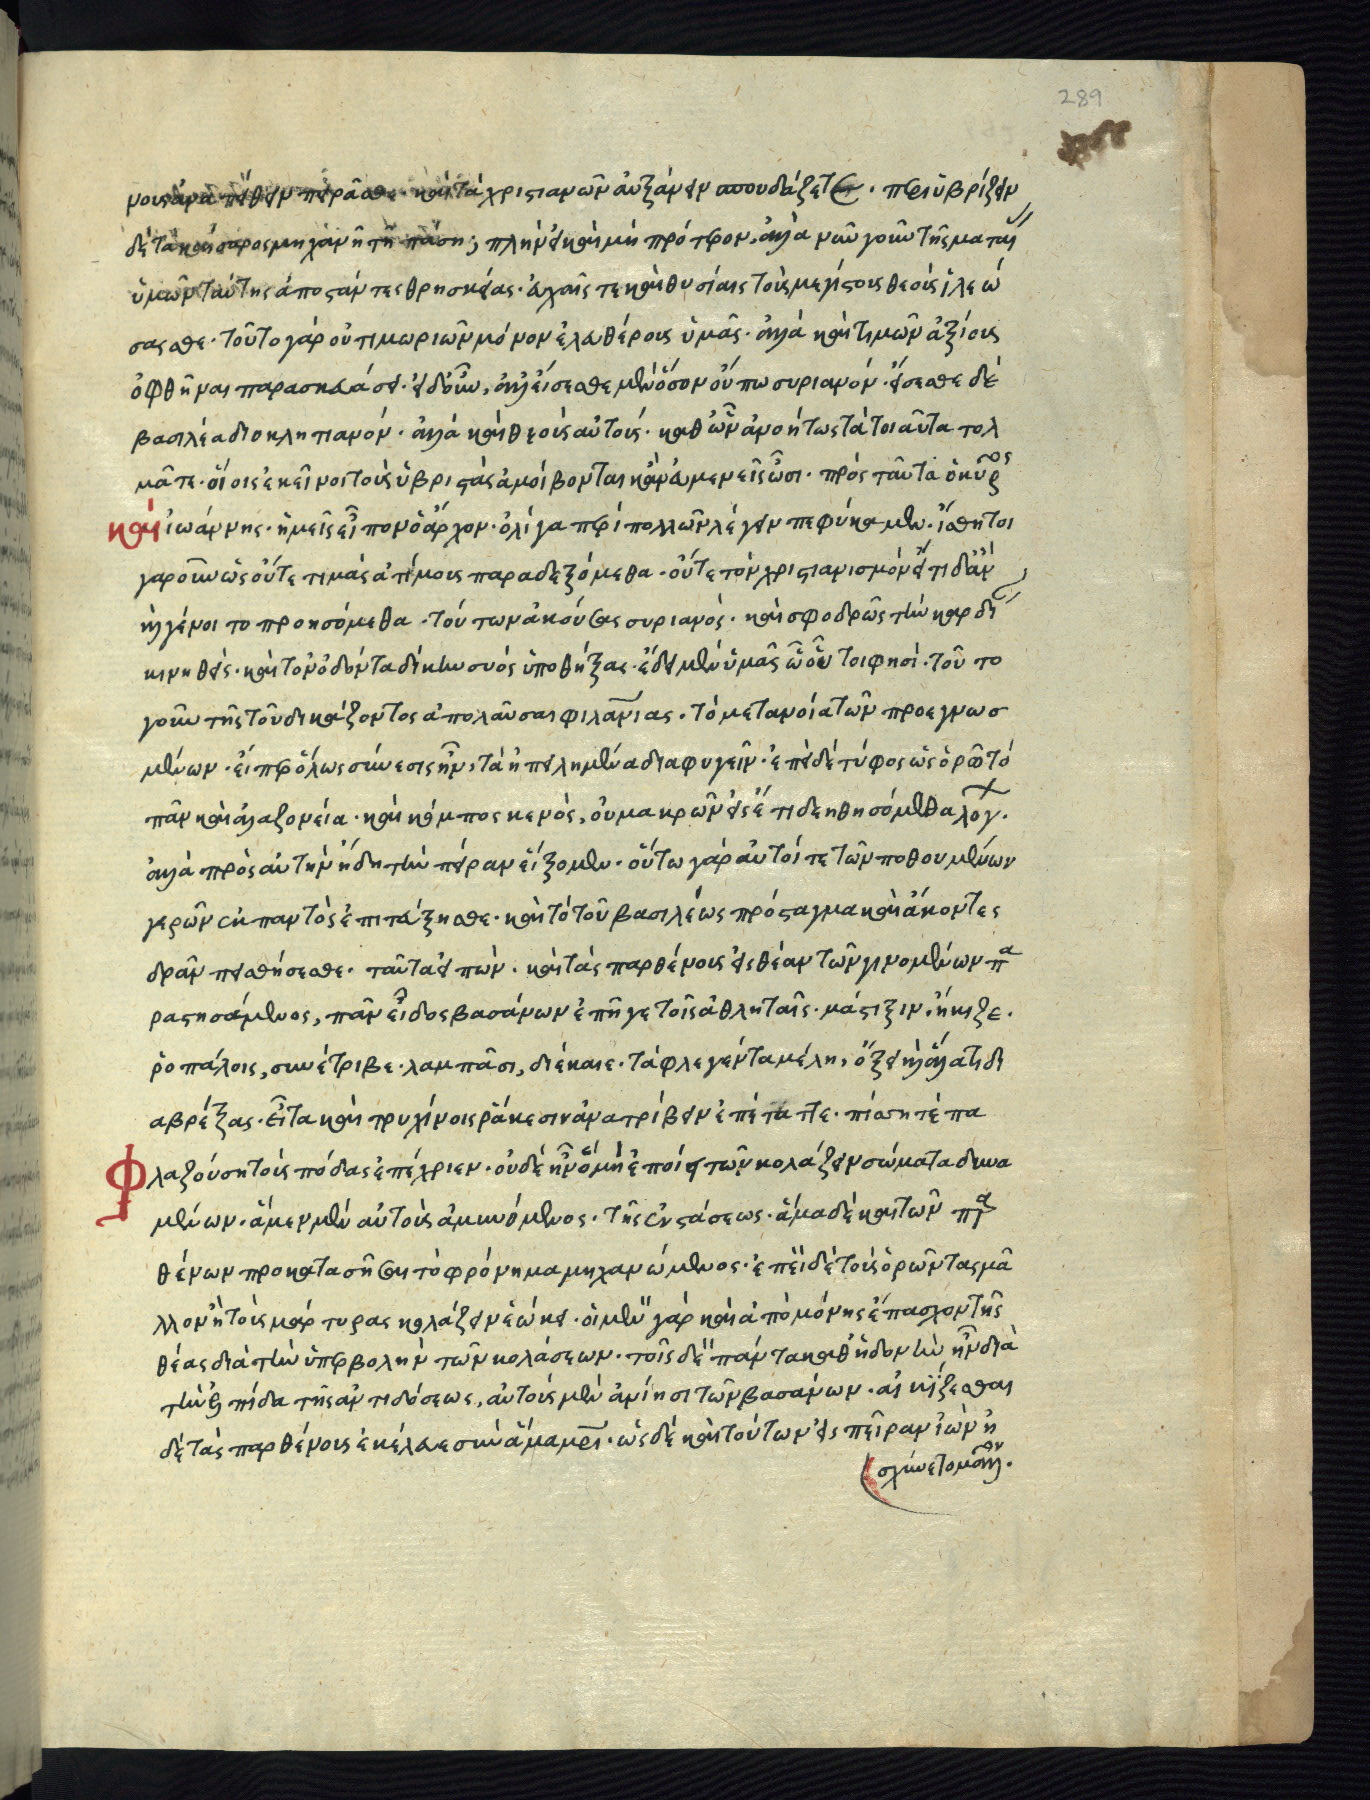 289
νους ἀναπείθειν πειρᾶσθε· καὶ τὰ χριστιανῶν αὐξάνειν σπουδάζετε· περιυβρίζειν
δὲ τὰ καίσαρος μηχανῇ τῇ πάσῃ; πλὴν εἰ καὶ μὴ πρότερον, ἀλλὰ νῦν γοῦν τῆς ματαί
ὑμῶν ταύτης ἀποστάντες θρησκείας· εὐχαῖς τε καὶ θυσίαις τοὺς μεγίστους θεοὺς ἱλεώ
σασθε· τοῦτο γὰρ οὐ τιμωριῶν μόνον ἐλευθέρους ὑμᾶς· ἀλλὰ καὶ τιμῶν ἀξίους
ὀφθῆναι παρασκευάσει· εἰ δ' οὖν, ἀλλ' εἴσεσθε μὲν ὅσον οὔπω συριανόν· εἴσεσθε δὲ
βασιλέα διοκλητιανόν· ἀλλὰ καὶ θεοὺς αὐτούς· καθ' ὧν ἀνοήτως τὰ τοιαῦτα τολ
μᾶτε· οἵοις ἐκεῖνοι τοὺς ὑβριστὰς ἀμείβονται κἂν εὐμενεῖς ὦσι· πρὸς ταῦτα ὁ κῦρος
καὶ ἰωάννης· ἡμεῖς εἶπον ὦ ἄρχον· ὀλίγα περὶ πολλῶν λέγειν πεφύκαμεν· ἴσθητοι
γαροῦν ὡς οὔτε τιμὰς ἀτίμους παραδεξόμεθα· οὔτε τὸν χριστιανισμὸν εἴ τι δ' ἂν
καὶ γένοιτο προησόμεθα· τούτων ἀκούσας συριανός· καὶ σφοδρῶς τὴν καρδί
κινηθείς· καὶ τὸν ὀδόντα δίκην συὸς ὑποθήξας· ἔδει μὲν ὑμᾶς ὦ οὗτοι φησί· τοῦ το
γοῦν τῆς τοῦ δικάζοντος ἀπολαῦσαι φιλανίας· τὸ μετανοίᾳ τῶν προεγνωσ
μένων· εἴπερ ὅλως σύνεσις ἦν, τὰ ἠπειλημένα διαφυγεῖν· ἐπεὶ δὲ τύφος ὡς ὁρῶ τὸ
πᾶν καὶ ἀλαζονεία· καὶ κόμπος κενός, οὐ μακρῶν εἰσέτι δεηθησόμεθα λόγ·
ἀλλὰ πρὸς αὐτὴν ἤδη τὴν πεῖραν ἥξομεν· οὕτω γὰρ αὐτοί τε τῶν ποθουμένων
γερῶν ἐκ παντὸς ἐπιτεύξησθε· καὶ τὸ τοῦ βασιλέως πρόσταγμα καὶ ἄκοντες
δρᾶν πεισθήσεσθε· ταῦτα εἰπών· καὶ τὰς παρθένους εἰς θέαν τῶν γινομένων πα
ραστησάμενος, πᾶν εἶδος βασάνων ἐπῆγε τοῖς ἀθληταῖς· μάστιξιν ᾔκιζε·
ῥοπάλοις, συνέτριβε· λαμπᾶσι, διέκαιε· τὰ φλεγέντα μέλη, ὄξει καὶ ἅλατι δι
αβρέξας· εἶτα καὶ τρυχίνοις ῥάκεσιν ἀνατρίβειν ἐπέταττε· πίσσῃ τὲ πα
φλαζούσῃ τοὺς πόδας ἐπέχριεν· οὐδὲ ἦν ὃ μὴ ἐποίει τῶν κολάζειν σώματα δυνα
μένων· ἅμα μὲν αὐτοὺς ἀμυνόμενος· τῆς ἐνστάσεως· ἅμα δὲ καὶ τῶν παρ
θένων προκατασεῖσαι τὸ φρόνημα μηχανώμενος· ἐπεὶ δὲ τοὺς ὁρῶντας μᾶ
λλον ἢ τοὺς μάρτυρας κολάζειν ἐῴκει· οἱ μὲν γὰρ καὶ ἀπὸ μόνης ἔπασχον τῆς
θέας διὰ τὴν ὑπερβολὴν τῶν κολάσεων· τοῖς δὲ πάντα καθ' ἡδονὴν ἦν διὰ
τὴν ἐλπίδα τῆς ἀντιδόσεως, αὐτοὺς μὲν ἀνίησι τῶν βασάνων· αἰκίζεσθαι
δὲ τὰς παρθένους ἐκέλευε σὺν ἅμα μρὶ· ὡς δὲ καὶ τούτων εἰς πεῖραν ἰὼν ᾐ
σχύνετο μᾶλλ·